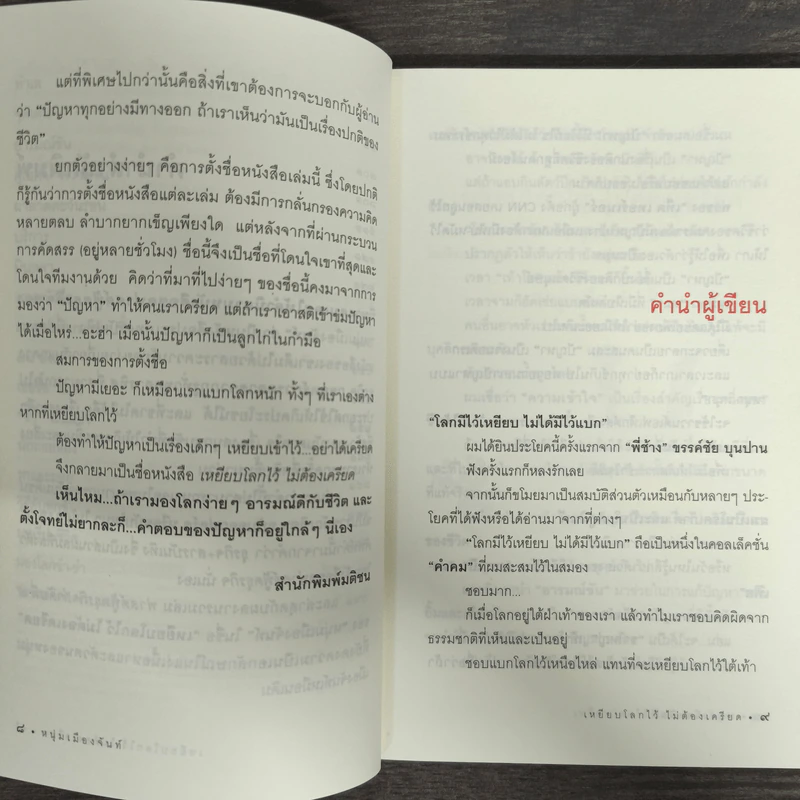 แต่ที่พิเศษไปกว่านั้นคือสิ่งที่เขาต้องการจะบอกกับผู้อ่าน
ว่า “ปัญหาทุกอย่างมีทางออก ถ้าเราเห็นว่ามันเป็นเรื่องปกติของ
ชีวิต”
ยกตัวอย่างง่ายๆ คือการตั้งชื่อหนังสือเล่มนี้ ซึ่งโดยปกติ
ก็รู้กันว่าการตั้งชื่อหนังสือแต่ละเล่ม ต้องมีการกลั่นกรองความคิด
หลายตลบ ลำบากยากเข็ญเพียงใด แต่หลังจากที่ผ่านกระบวน
การคัดสรร (อยู่หลายชั่วโมง) ชื่อนี้จึงเป็นชื่อที่โดนใจเขาที่สุดและ
โดนใจทีมงานด้วย คิดว่าที่มาที่ไปง่ายๆ ของชื่อนี้คงมาจากการ
มองว่า “ปัญหา” ทำให้คนเราเครียด แต่ถ้าเราเอาสติเข้าข่มปัญหา
ได้เมื่อไหร่...อะฮ่า เมื่อนั้นปัญหาก็เป็นลูกไก่ในกำมือ
สมการของการตั้งชื่อ
ปัญหามีเยอะ ก็เหมือนเราแบกโลกหนัก ทั้งๆ ที่เราเองต่าง
หากที่เหยียบโลกไว้
ต้องทำให้ปัญหาเป็นเรื่องเด็กๆ เหยียบเข้าไว้...อย่าได้เครียด
จึงกลายมาเป็นชื่อหนังสือ เหยียบโลกไว้ ไม่ต้องเครียด
เห็นไหม...ถ้าเรามองโลกง่ายๆ อารมณ์ดีกับชีวิต และ
ตั้งโจทย์ไม่ยากละก็...คำตอบของปัญหาก็อยู่ใกล้ๆ นี่เอง
สำนักพิมพ์มติชน
๘ • หนุ่มเมืองจันท์
คำนำผู้เขียน
“โลกมีไว้เหยียบ ไม่ได้มีไว้แบก”
ผมได้ยินประโยคนี้ครั้งแรกจาก “พี่ช้าง” ขรรค์ชัย บุนปาน
ฟังครั้งแรกก็หลงรักเลย
จากนั้นก็ขโมยมาเป็นสมบัติส่วนตัวเหมือนกับหลายๆ ประ-
โยคที่ได้ฟังหรือได้อ่านมาจากที่ต่างๆ
“โลกมีไว้เหยียบ ไม่ได้มีไว้แบก” ถือเป็นหนึ่งในคอลเล็คชั่น
“คำคม” ที่ผมสะสมไว้ในสมอง
ชอบมาก...
ก็เมื่อโลกอยู่ใต้ฝ่าเท้าของเรา แล้วทำไมเราชอบคิดผิดจาก
ธรรมชาติที่เห็นและเป็นอยู่
ชอบแบกโลกไว้เหนือไหล่ แทนที่จะเหยียบโลกไว้ใต้เท้า
เหยียบโลกไว้ ไม่ต้องเครียด • ๙